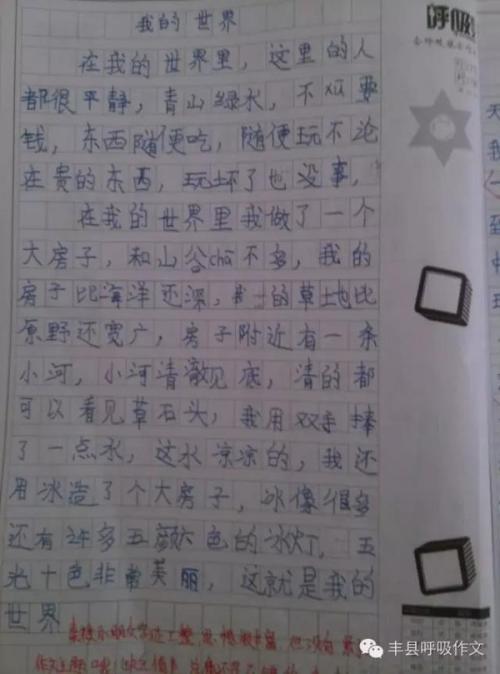 我的世界
在我的世界里，这里的人
都很平静，青山绿水，不xū要
钱，东西随便吃，随便玩不论
在贵的东西，玩坏了也没事，
在我的世界里我做了一个
大房子，和山谷chā不多，我的
房子比海洋还深，我的草地比
原野还宽广，房子附近有一条
小河，小河清澈见底，清的都
可以看见草石头，我用双手捧
了一点水，这水凉凉的，我还
用冰造了个大房子，冰像很多
还有许多五颜六色的冰灯，五
光十色非常美丽，这就是我的
世界
呼吸
丰县呼吸作文